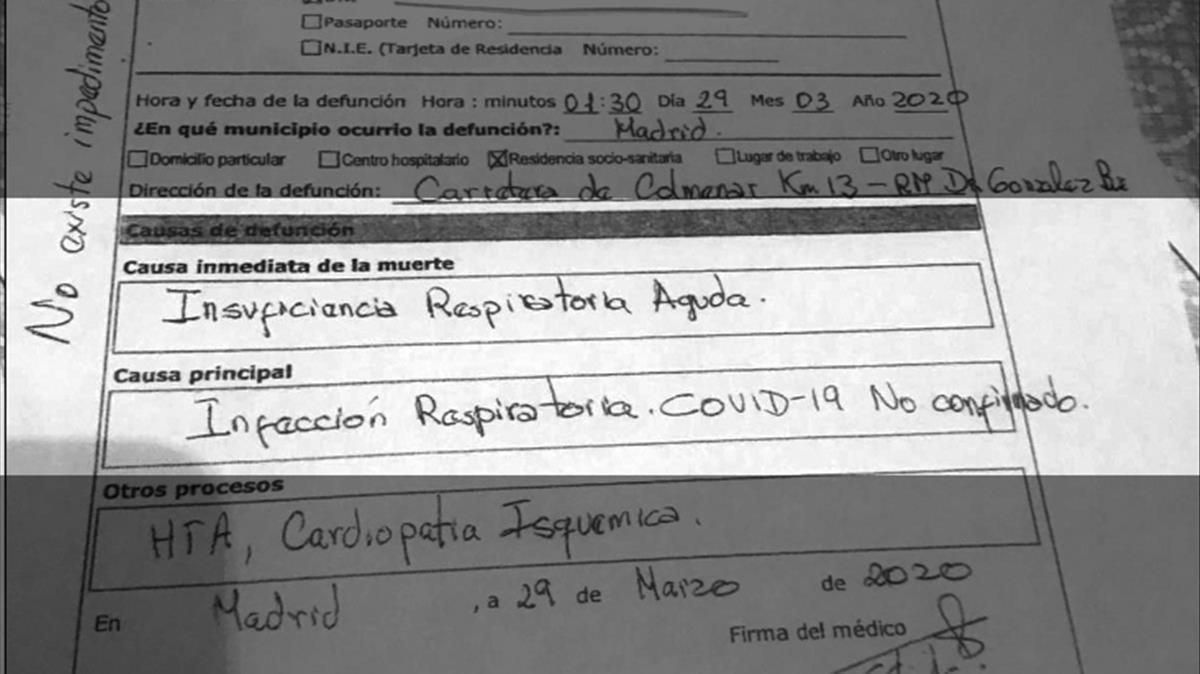 Pasaporte Número:
N.I.E. (Tarjeta de Residencia Número:
Hora y fecha de la defunción Hora : minutos 01:30 Día 29 Mes 03 Año 2020
¿En qué municipio ocurrio la defunción?: Madrid.
Domicilio particular Centro hospitalario Residencia socio-sanitaria Lugar de trabajo Otro lugar
Dirección de la defunción: Carretera de Colmenar Km 13 - RM Dr Gonzalez
Causas de defunción
Causa inmediata de la muerte
Insuficiencia Respiratoria Aguda.
Causa principal
Infección Respiratoria. COVID-19 No confirmado.
Otros procesos
HTA, Cardiopatía Isquemica.
En Madrid , a 29 de Marzo de 2020
Firma del médico
No existe impedimento